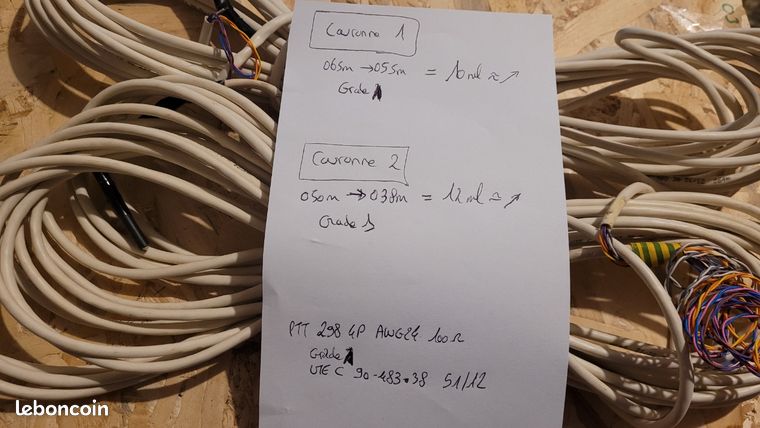 Couronne 1
065m → 055m = 10ml ≈ ↗
Grade 1
Couronne 2
050m → 038m = 12ml ≈ ↗
Grade 1
PTT 298 4P AWG24 100Ω
Grade 1
UTE C 90-483.38 51/12
leboncoin